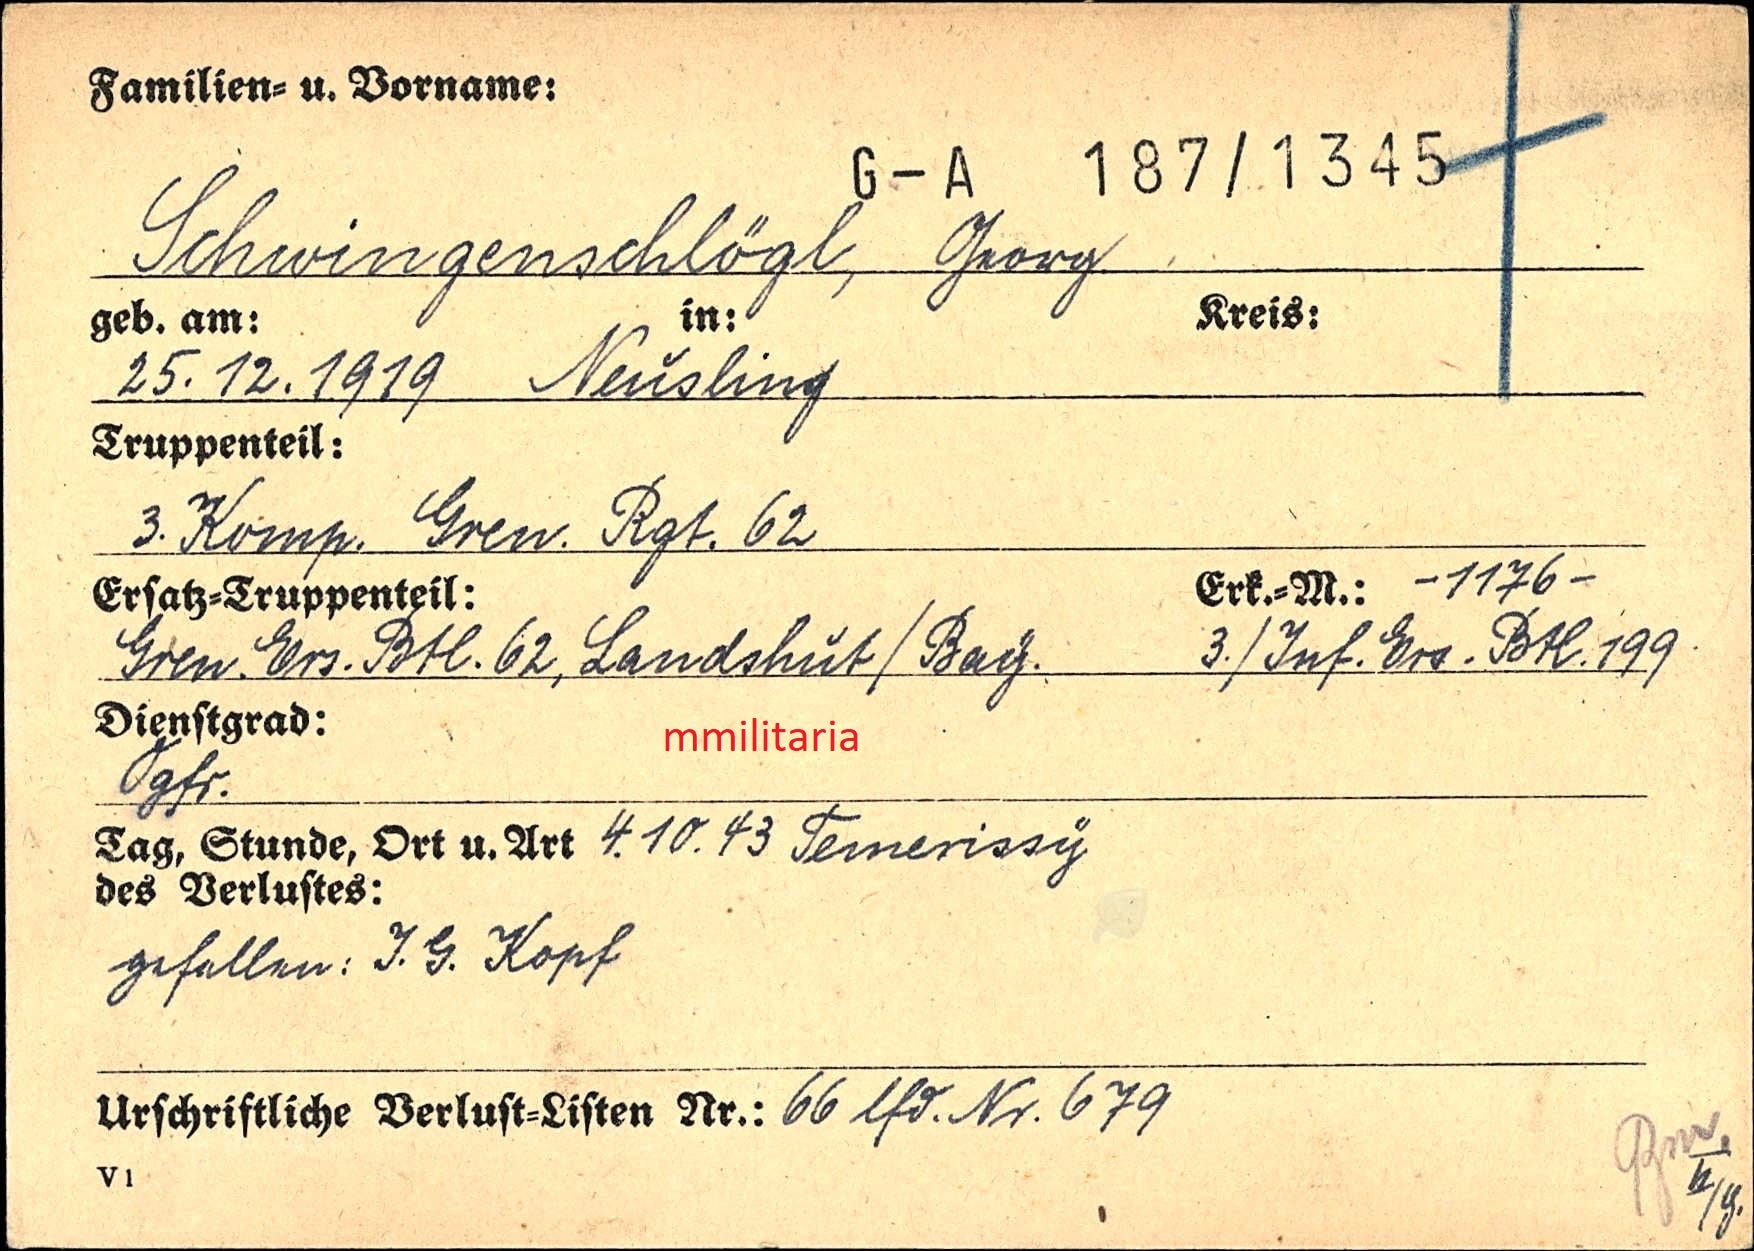 Familien= u. Vorname:
G-A 187/1345
Schwingenschlögl, Georg
geb. am: in: Kreis:
25.12.1919 Neusling
Truppenteil:
3. Komp. Gren. Rgt. 62
Ersatz=Truppenteil: Erk.=M.: -1176-
Gren. Ers. Btl. 62, Landshut / Bay. 3./Inf. Ers. Btl. 199
Dienstgrad:
mmilitaria
Ogfr.
Tag, Stunde, Ort u. Art 4.10.43 Temerissy
des Verlustes:
gefallen: I.G. Kopf
Urschriftliche Verlust=Listen Nr.: 66 lfd. Nr. 679
V 1